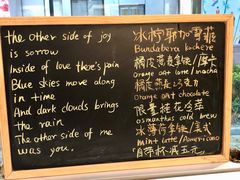 the other side of joy
is sorrow
Inside of love there's pain
Blue skies move along
in time
And dark clouds brings
the rain
The other side of me
was you.
冰柠耶加雪菲
Bundaberg kochere
橘皮燕麦拿铁/摩卡
orange oat latte/mocha
橘皮燕麦巧克力
orange oat chocolate
限量桂花冷萃
osmanthus cold brew
冰薄荷拿铁/美式
mint latte/Americano
自带杯减五元